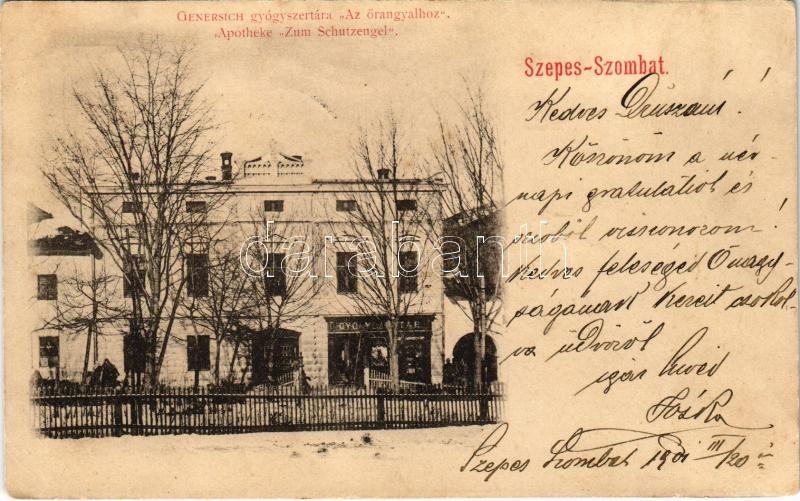 GENERSICH gyógyszertára „Az őrangyalhoz".
Apotheke „Zum Schutzengel".
Szepes-Szombat.
GYÓGYSZERTÁR
darabanth
Kedves Druszám!
Köszönöm a név-
napi gratulátiót és
viszonozom!
Kedves feleséged Őnagy-
ságának kezeit csókol-
va üdvözöl
igaz híved
Szepes Szombat 901 III/20